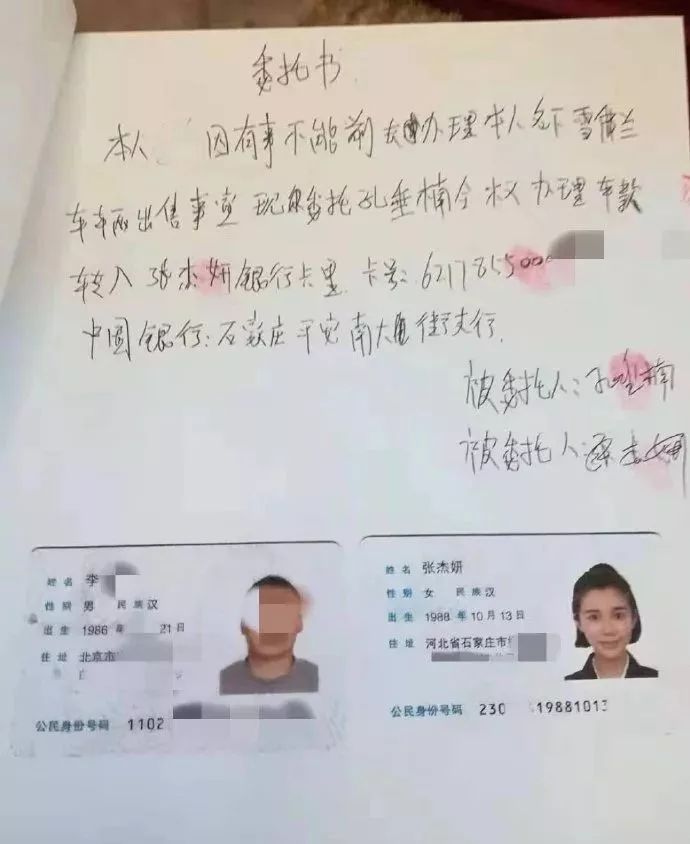 委托书
本人 因有事不能前去办理本人名下雪佛兰
车辆出售事宜 现委托孔垂楠全权办理车款
转入张杰妍银行卡里 卡号:6217855000
中国银行:石家庄平安南大街支行.
被委托人:孔垂楠
被委托人:张杰妍
姓名 李
性别 男 民族 汉
出生 1986 年 21 日
住址 北京市
公民身份号码 1102
姓名 张杰妍
性别 女 民族 汉
出生 1988 年 10 月 13 日
住址 河北省石家庄市
公民身份号码 230 19881013